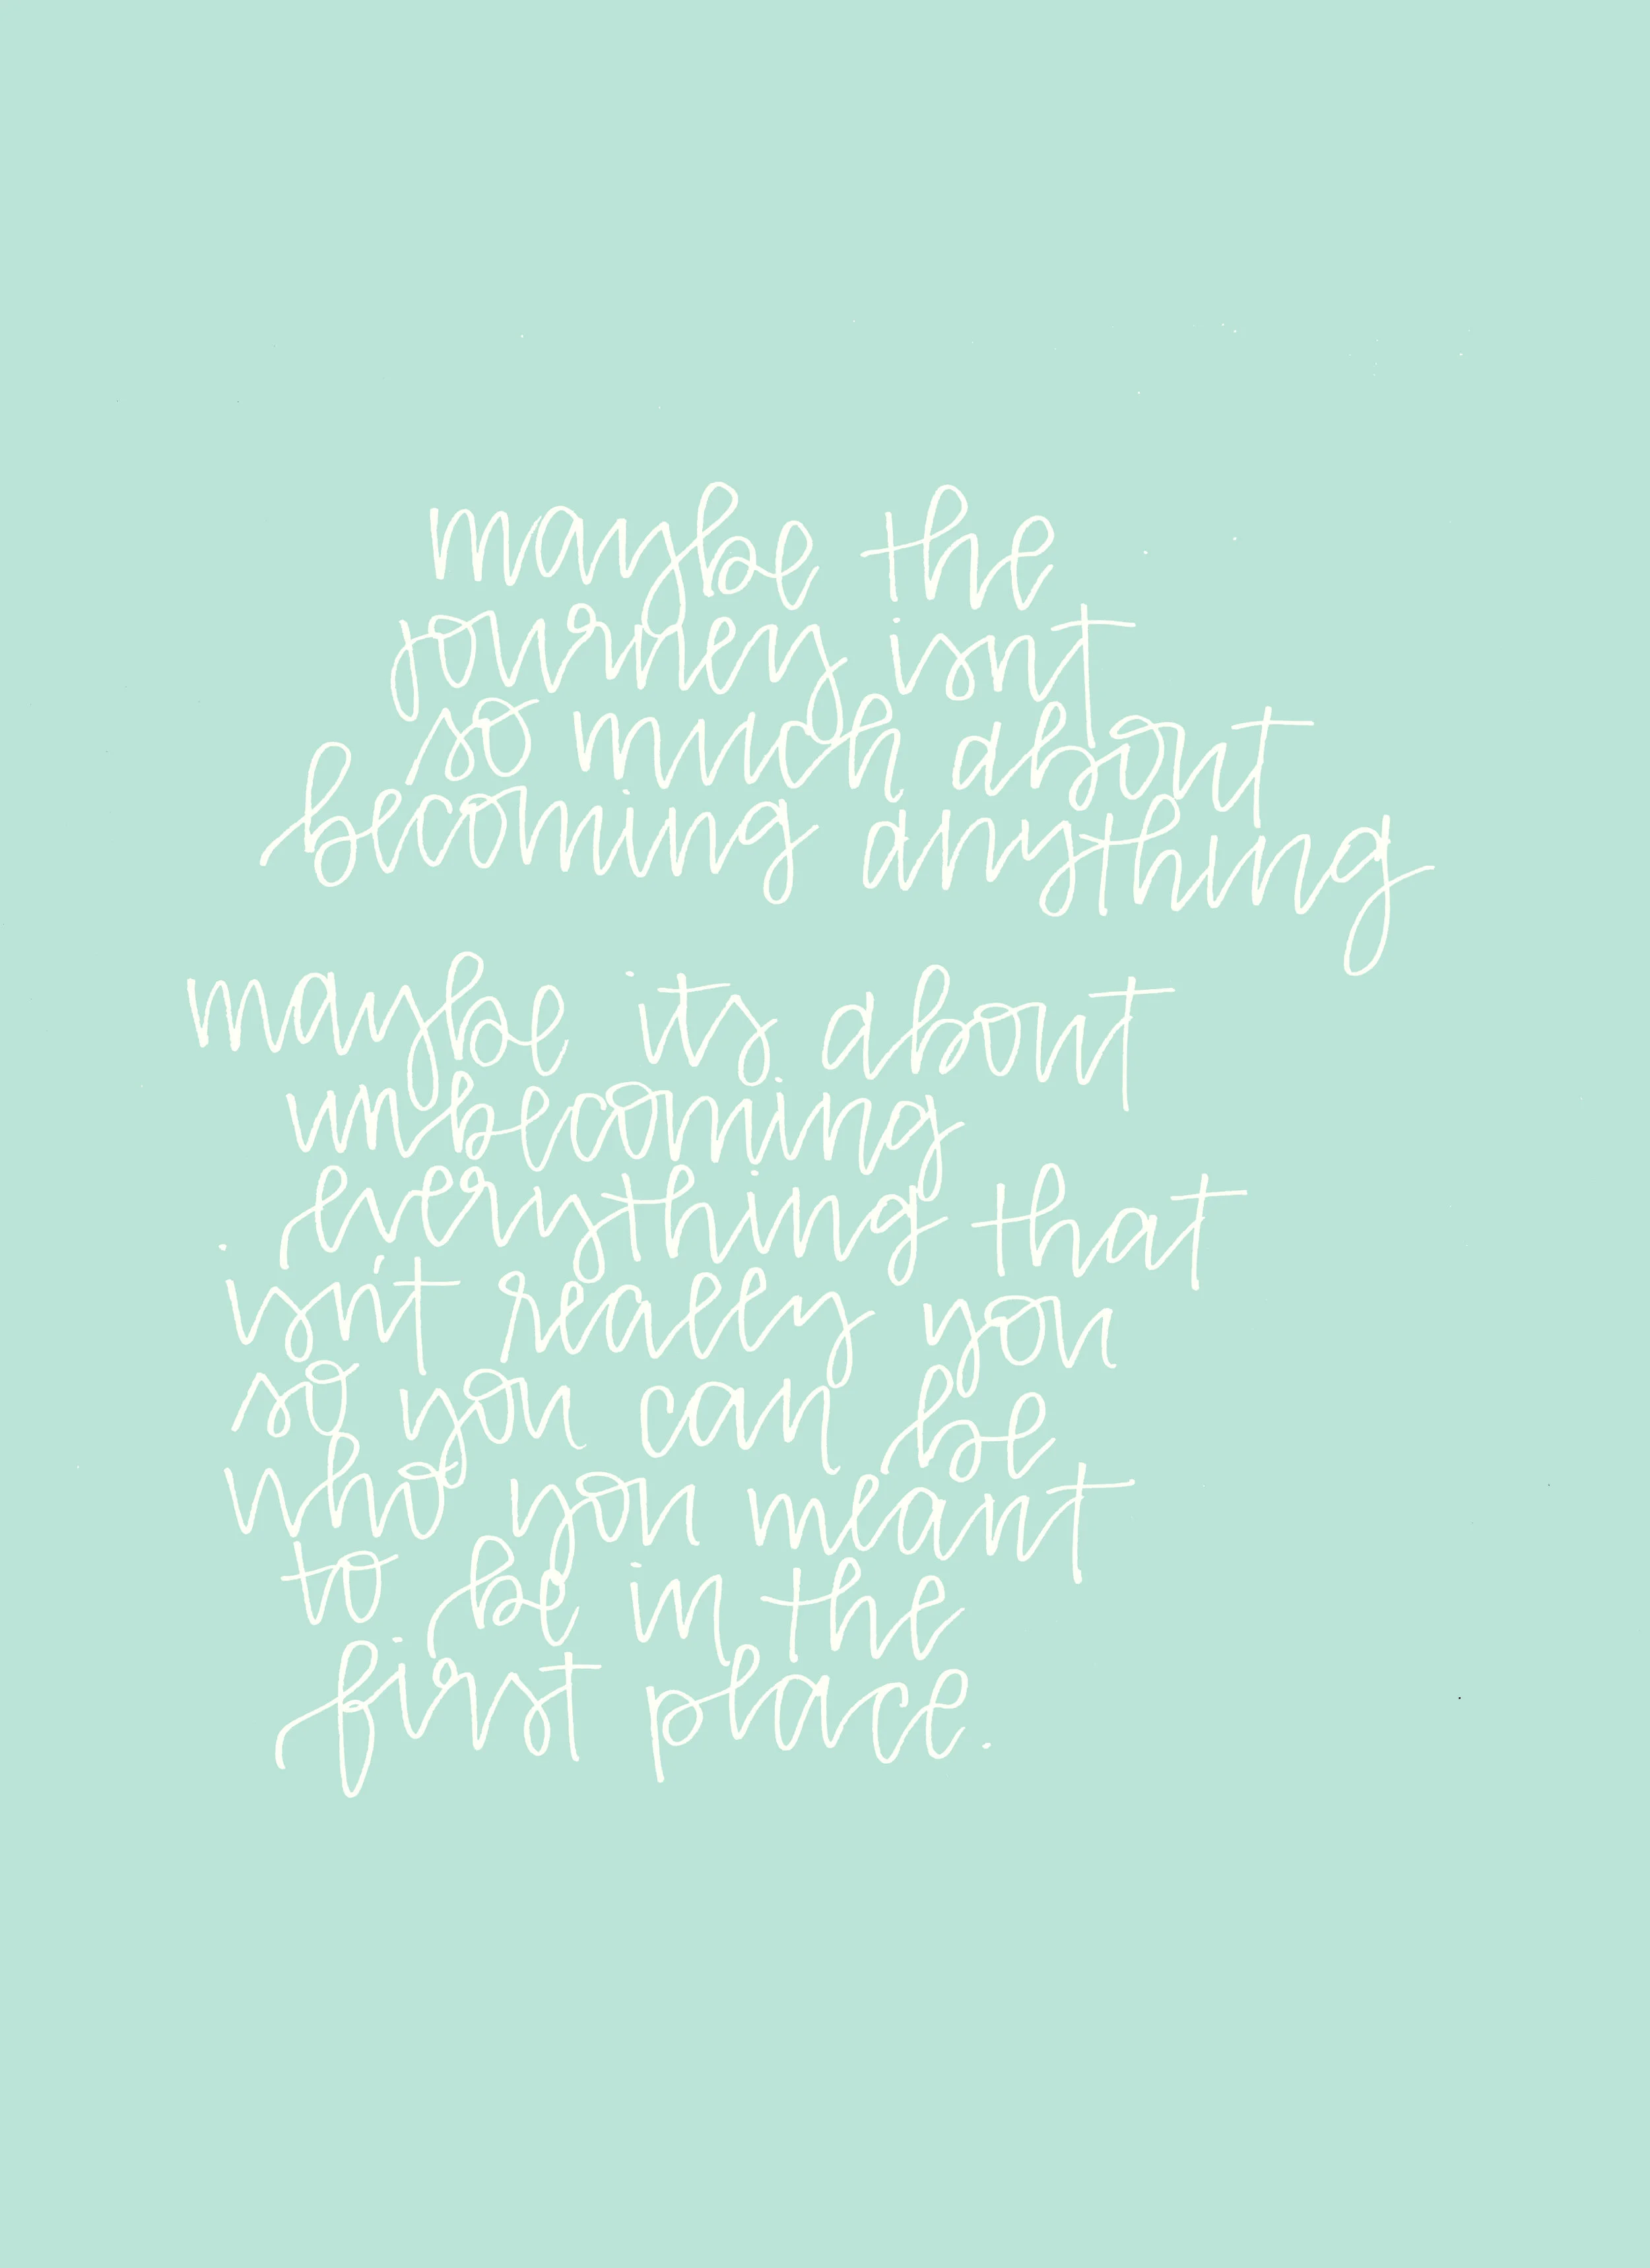 maybe the
journey isnt
so much about
becoming anything
maybe its about
unbecoming
everything that
isn't really you
so you can be
who you meant
to be in the
first place.